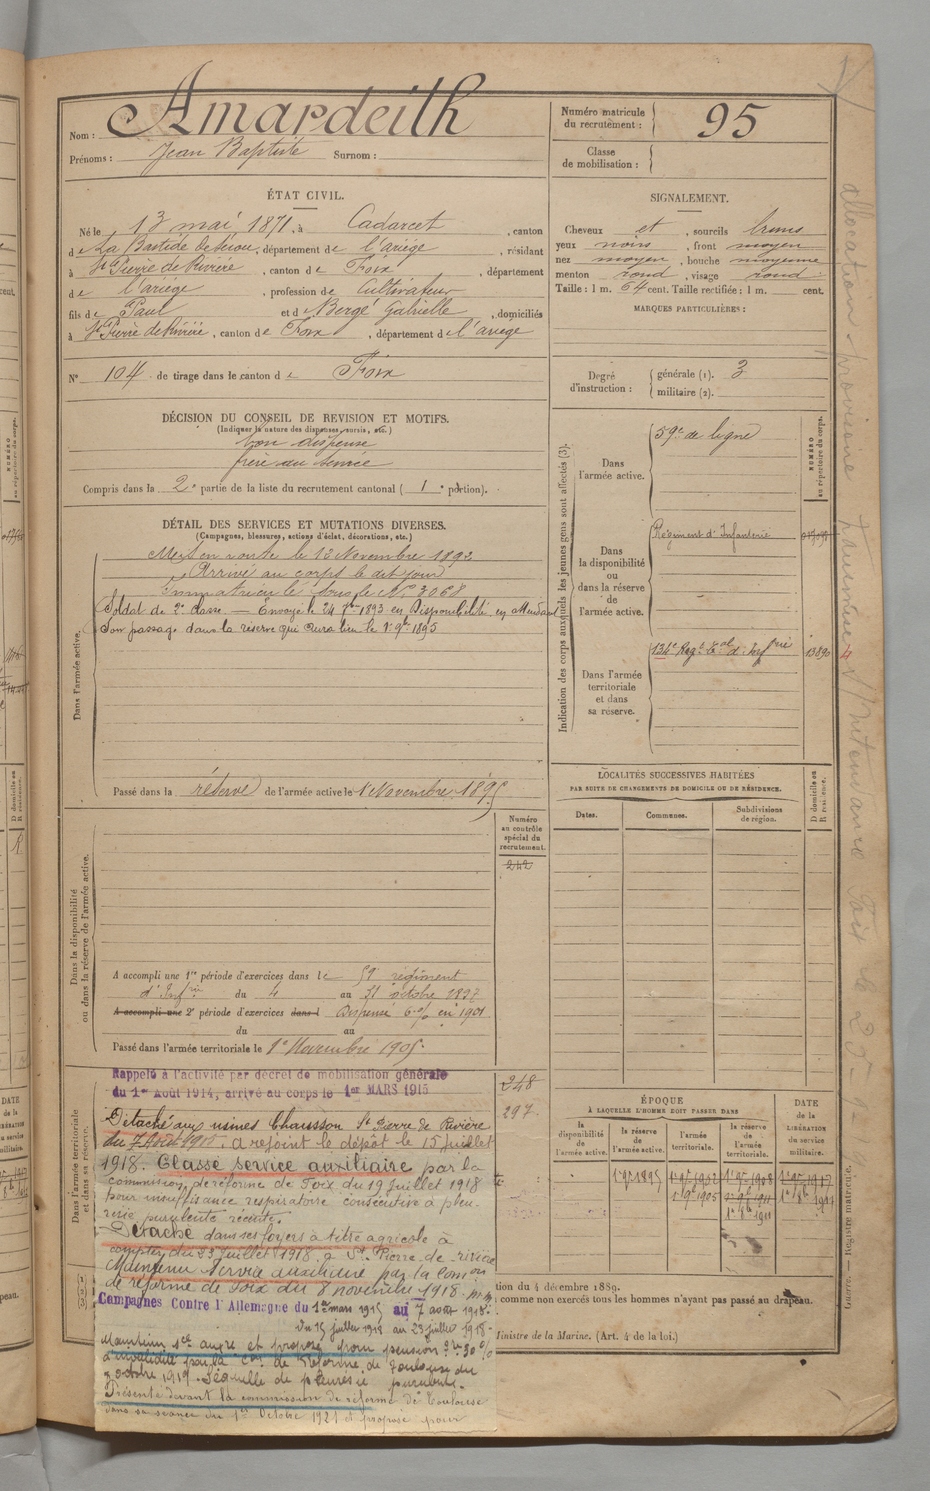 Nom : Amardeith
Prénoms : Jean Baptiste Surnom :
Numéro matricule du recrutement : 95
Classe de mobilisation :
ÉTAT CIVIL.
Né le 13 mai 1871, à Cadarcet, canton
de La Bastide de Sérou, département de l'ariège, résidant
à St Pierre de Rivière, canton de Foix, département
de l'ariège, profession de Cultivateur
fils de Paul et de Bergé Gabrielle, domiciliés
à St Pierre de Rivière, canton de Foix, département de l'ariège
N° 104 de tirage dans le canton de Foix
SIGNALEMENT.
Cheveux et, sourcils bruns
yeux noirs, front moyen
nez moyen, bouche moyenne
menton rond, visage rond
Taille : 1 m. 64 cent. Taille rectifiée : 1 m. cent.
MARQUES PARTICULIÈRES :
Degré d'instruction :
générale (1). 3
militaire (2).
DÉCISION DU CONSEIL DE REVISION ET MOTIFS.
(Indiquer la nature des dispenses, sursis, etc.)
bon dispensé
frère au service
Compris dans la 2e partie de la liste du recrutement cantonal (1e portion).
DÉTAIL DES SERVICES ET MUTATIONS DIVERSES.
(Campagnes, blessures, actions d'éclat, décorations, etc.)
Dans l'armée active.
Mis en route le 13 Novembre 1892
Arrivé au corps le dit jour
Immatriculé sous le N° 3068
Soldat de 2e classe — Envoyé le 24 7bre 1893 en Disponibilité en attendant
son passage dans la réserve qui aura lieu le 1er 9bre 1895
Passé dans la réserve de l'armée active le 1 Novembre 1895
Indication des corps auxquels les jeunes gens sont affectés (3).
Dans l'armée active.
59e de ligne
Dans la disponibilité ou dans la réserve de l'armée active.
Régiment d'Infanterie
Dans l'armée territoriale et dans sa réserve.
134e Regt tal d'Infrie
13890
NUMÉRO au répertoire du corps.
LOCALITÉS SUCCESSIVES HABITÉES
PAR SUITE DE CHANGEMENTS DE DOMICILE OU DE RÉSIDENCE.
Dates. Communes. Subdivisions de région.
D domicile ou R résidence.
Dans la disponibilité ou dans la réserve de l'armée active.
Numéro au contrôle spécial du recrutement.
242
A accompli une 1re période d'exercices dans le 59 régiment
d'Infrie du 4 au 31 octobre 1897
A accompli une 2e période d'exercices dans l Dispensé 6 o/o en 1901
du au
Passé dans l'armée territoriale le 1er Novembre 1905.
Dans l'armée territoriale et dans sa réserve.
248
297
Rappelé à l'activité par décret de mobilisation générale
du 1er Août 1914, arrivé au corps le 1er MARS 1915
Détaché aux usines Chausson St Pierre de Rivière
du 7 Août 1915. a rejoint le dépôt le 15 juillet
1918. Classé service auxiliaire par la
commission de réforme de Foix du 19 Juillet 1918
pour insuffisance respiratoire consécutive à pleu-
résie purulente récente.
Détaché dans ses foyers à titre agricole à
compter du 23 Juillet 1918 à St Pierre-de-rivière
Maintenu Service auxiliaire par la Comon
de réforme de Foix du 8 novembre 1918.
Campagnes Contre l'Allemagne du 1er mars 1915 au 7 aout 1918.
Du 15 juillet 1918 au 23 juillet 1918.
Maintenu sce auxre et proposé pour pension 30 o/o
d'invalidité par la con de Réforme de Toulouse du
octobre 1919. Séquelle de pleurésie purulente.
Présenté devant la commission de réforme de Toulouse
dans sa séance du 1er Octobre 1921 et proposé pour
ÉPOQUE
À LAQUELLE L'HOMME DOIT PASSER DANS
la disponibilité de l'armée active. la réserve de l'armée active. l'armée territoriale. la réserve de l'armée territoriale.
DATE de la LIBÉRATION du service militaire.
1er 9bre 1895
1er 9bre 1905
tion du 4 décembre 1889.
comme non exercés tous les hommes n'ayant pas passé au drapeau.
Ministre de la Marine. (Art. 4 de la loi.)
Guerre. — Registre matricule.
allocation provisoire